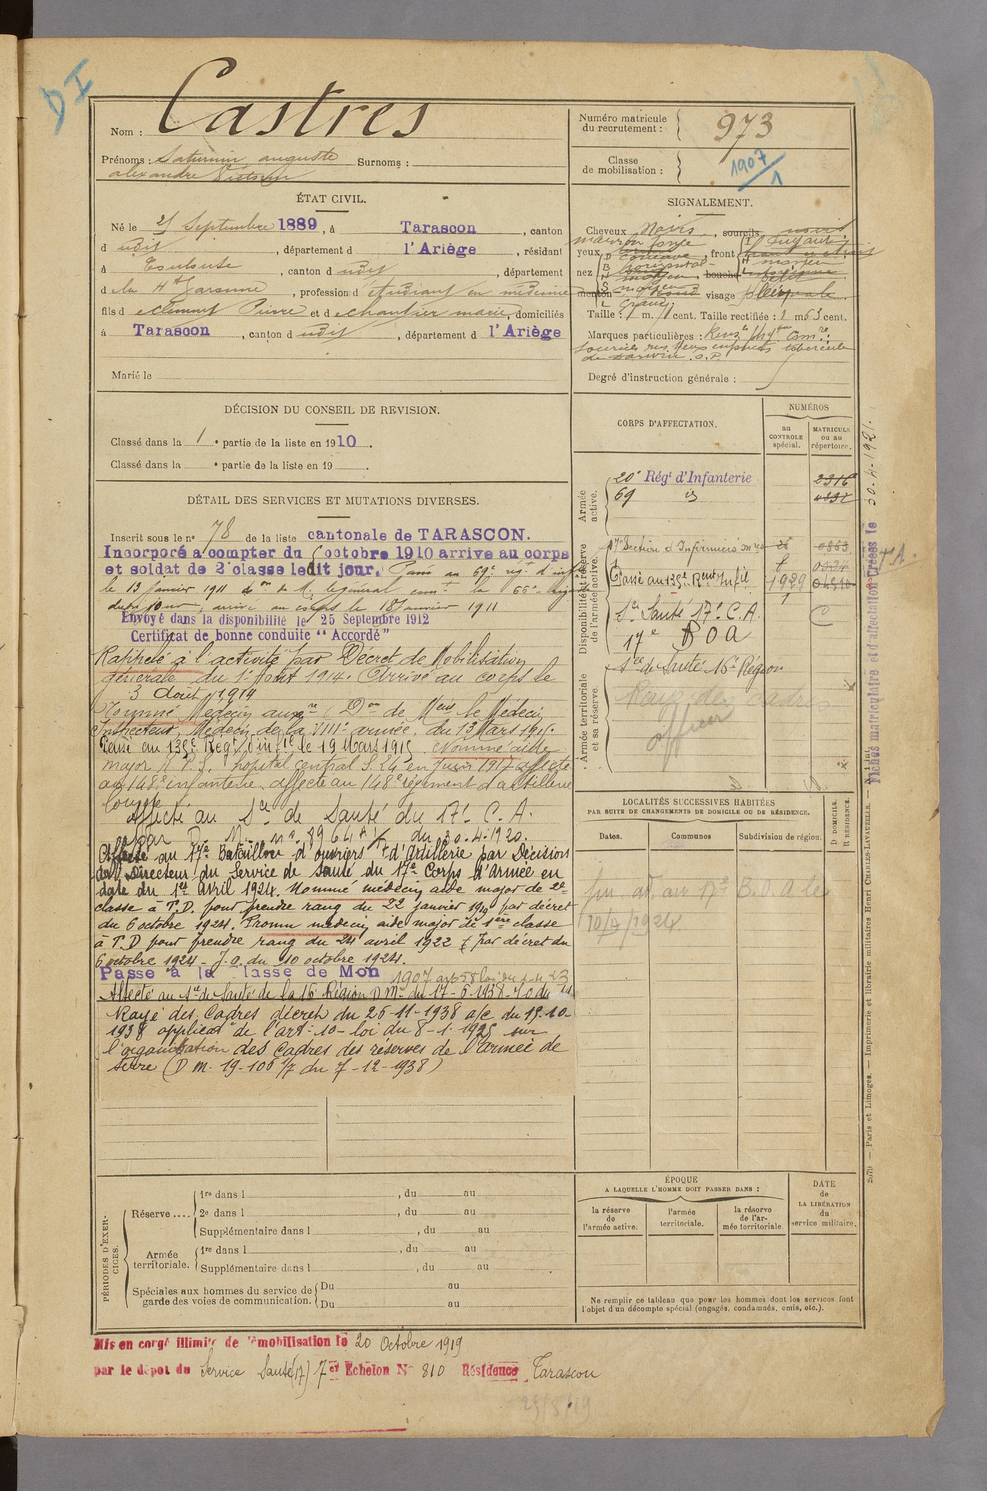 DI
Nom : Castres
Prénoms : Saturnin auguste Surnoms :
alexandre
Numéro matricule du recrutement : 973
Classe de mobilisation : 1907/1
ÉTAT CIVIL.
Né le 25 Septembre 1889, à Tarascon, canton
d udit, département d l'Ariège, résidant
à Toulouse, canton d udit, département
d la Hte Garonne, profession d etudiant en médecine
fils d e Clement Pierre et d e chantier marie, domiciliés
à Tarascon, canton d udit, département d l'Ariège
Marié le
SIGNALEMENT.
Cheveux Noirs, sourcils noirs
marron foncé
yeux, front
nez, bouche
menton rond visage
Taille : 1 m. cent. Taille rectifiée : 1 m 63 cent.
Marques particulières :
Degré d'instruction générale :
DÉCISION DU CONSEIL DE REVISION.
Classé dans la 1e partie de la liste en 1910.
Classé dans la e partie de la liste en 19 .
DÉTAIL DES SERVICES ET MUTATIONS DIVERSES.
Inscrit sous le n° 78 de la liste cantonale de TARASCON.
Incorporé a compter du 6 octobre 1910 arrive au corps
et soldat de 2e classe ledit jour. Passé au 69e rég. d'inf
le 13 Janvier 1911
dudit jour, arrivé au corps le 18 Janvier 1911
Envoyé dans la disponibilité le 25 Septembre 1912
Certificat de bonne conduite "Accordé"
Rappelé à l'activité par Décret de Mobilisation
générale du 1er Aout 1914. Arrivé au corps le
3 Aout 1914
Nommé Médecin auxre Don de Mr le Médecin
Inspecteur, Médecin de la VIIIe armée, du 13 Mars 1915.
Passé au 135e Regt d'inf.ie le 19 Mars 1915. Nommé aide
major hopital central S.24 en Juin 1917 affecté
au 148e infanterie. affecté au 148e régiment d'artillerie
lourde.
affecté au Sce de Santé du 17e C.A.
par D. Mlle n° du 30.4.1920.
Affecté au 17e Bataillon d'ouvriers d'Artillerie par Décision
du Directeur du Service de Santé du 17e Corps d'Armée en
date du 1er Avril 1924. Nommé médecin aide major de 2e
classe à T.D. pour prendre rang du 22 janvier par décret
du 6 octobre 1924. Promu médecin aide major de 1ère classe
à T.D pour prendre rang du 24 avril 1922 par décret du
6 octobre 1924 - J.O. du 10 octobre 1924.
Passé à la Classe de Mon 1907 art 58 loi du
Affecté au Sce de Santé de la 16 Région D Mle du 17-6-1938
Rayé des Cadres décret du 26-11-1938 a/c du 19-10-
1938 applicaon de l'art: 10- loi du 8-1-1925 sur
l'organisation des Cadres des réserves de l'armée de
terre (D m. 19-106 1/7 du 7-12-1938)
CORPS D'AFFECTATION.
NUMÉROS
au CONTROLE spécial.
MATRICULE ou au répertoire.
Armée active.
20e Régt d'Infanterie 2316
69 d° 4892
Disponibilité et réserve de l'armée active.
17e Section d'Infirmiers mres 26 0863
Passé au 135e Rgt Infie 1929
Sce Santé 17e C.A.
17e B O A
Armée territoriale et sa réserve.
Sce de Santé 16e Région
Rayé des cadres
officier
Fiches matriculaire et d'affectation créées le 30.4.1921.
LOCALITÉS SUCCESSIVES HABITÉES
PAR SUITE DE CHANGEMENTS DE DOMICILE OU DE RÉSIDENCE.
Dates.
Communes
Subdivision de région.
D DOMICILE. R RÉSIDENCE.
au 17e B.O.A le
10/4/1924
PÉRIODES D'EXERCICES.
Réserve....
1re dans l , du au
2e dans l , du au
Supplémentaire dans l , du au
Armée territoriale.
1re dans l , du au
Supplémentaire dans l , du au
Spéciales aux hommes du service de garde des voies de communication.
Du au
Du au
ÉPOQUE
A LAQUELLE L'HOMME DOIT PASSER DANS :
la réserve de l'armée active.
l'armée territoriale.
la réserve de l'armée territoriale
DATE de LA LIBÉRATION du service militaire.
Ne remplir ce tableau que pour les hommes dont les services font
l'objet d'un décompte spécial (engagés, condamnés, omis, etc.).
2079 — Paris et Limoges. — Imprimerie et librairie militaires Henri CHARLES-LAVAUZELLE.
Mis en congé illimité de démobilisation le 20 Octobre 1919
par le dépot du Service Santé (17) 7er Echelon N° 810 Résidence Tarascon